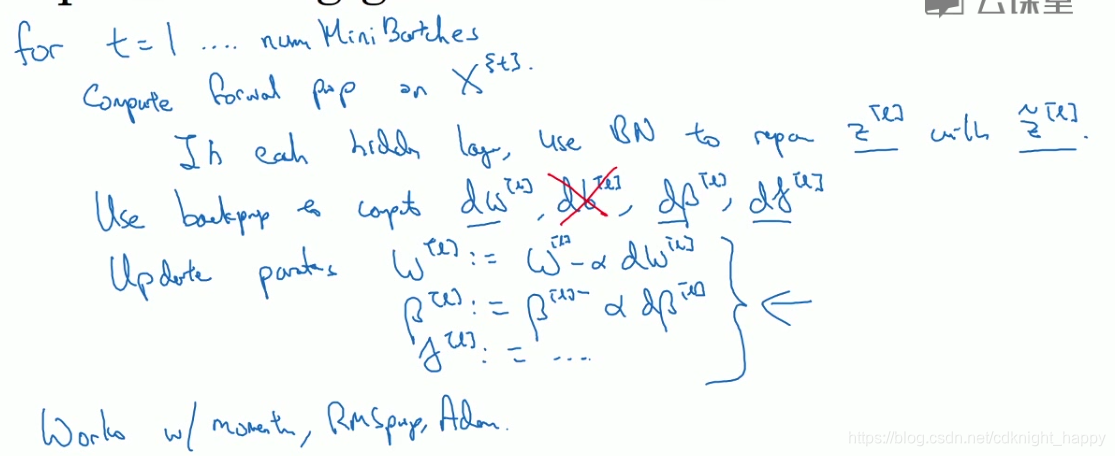 云课堂
for t = 1 .... num MiniBatches
Compute forwal pop on X^{t}.
In eah hidden lay, use BN to repan z^[l] with z̃^[l].
Use backprop to compt dw^[l], db^[l], dβ^[l], dγ^[l]
Update partes w^[l] := w^[l] - α dw^[l]
β^[l] := β^[l] - α dβ^[l]
γ^[l] := ....
Works w/ momentm, RMSprop, Adam.
https://blog.csdn.net/cdknight_happy